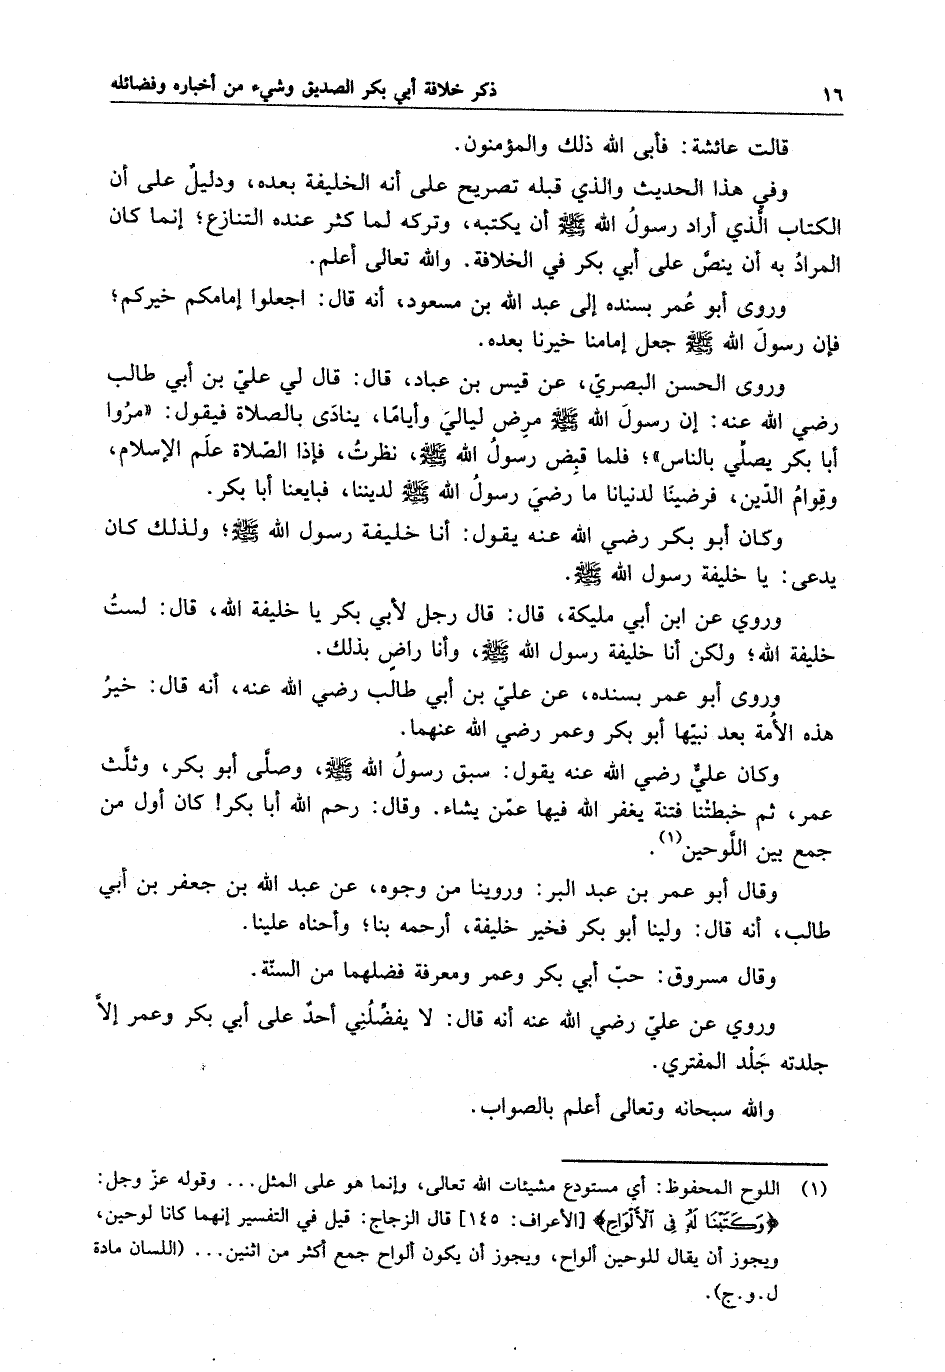 ١٦ ذكر خلافة أبي بكر الصديق وشيء من أخباره وفضائله
قالت عائشة: فأبى الله ذلك والمؤمنون.
وفي هذا الحديث والذي قبله تصريح على أنه الخليفة بعده، ودليلٌ على أن
الكتاب الَّذي أراد رسولُ الله ﷺ أن يكتبه، وتركه لما كثر عنده التنازع؛ إنما كان
المرادُ به أن ينصَّ على أبي بكر في الخلافة. والله تعالى أعلم.
وروى أبو عُمر بسنده إلى عبد الله بن مسعود، أنه قال: اجعلوا إمامكم خيركم؛
فإن رسولَ الله ﷺ جعل إمامنا خيرنا بعده.
وروى الحسن البصريّ، عن قيس بن عباد، قال: قال لي عليّ بن أبي طالب
رضي الله عنه: إن رسولَ الله ﷺ مرِض لياليَ وأيامًا، ينادَى بالصلاة فيقول: «مرُوا
أبا بكر يصلِّي بالناس»؛ فلما قبِض رسولُ الله ﷺ، نظرتُ، فإذا الصّلاة علَم الإسلام،
وقِوامُ الدّين، فرضينًا لدنيانا ما رضيَ رسولُ الله ﷺ لديننا، فبايعنا أبا بكر.
وكان أبو بكر رضي الله عنه يقول: أنا خليفة رسول الله ﷺ؛ ولذلك كان
يدعى: يا خليفة رسول الله ﷺ.
وروي عن ابن أبي مليكة، قال: قال رجل لأبي بكر يا خليفة الله، قال: لستُ
خليفة الله؛ ولكن أنا خليفة رسول الله ﷺ، وأنا راضٍ بذلك.
وروى أبو عمر بسنده، عن عليّ بن أبي طالب رضي الله عنه، أنه قال: خيرُ
هذه الأُمة بعد نبيّها أبو بكر وعمر رضي الله عنهما.
وكان عليٌّ رضي الله عنه يقول: سبق رسولُ الله ﷺ، وصلَّى أبو بكر، وثلَّث
عمر، ثم خبطتْنا فتنة يغفر الله فيها عمّن يشاء. وقال: رحم الله أبا بكر! كان أول من
جمع بين اللَّوحين(١).
وقال أبو عمر بن عبد البر: وروينا من وجوه، عن عبد الله بن جعفر بن أبي
طالب، أنه قال: ولينا أبو بكر فخير خليفة، أرحمه بنا؛ وأحناه علينا.
وقال مسروق: حبّ أبي بكر وعمر ومعرفة فضلهما من السنّة.
وروي عن عليّ رضي الله عنه أنه قال: لا يفضِّلُنِي أحدٌ على أبي بكر وعمر إلاَّ
جلدته جَلْد المفتري.
والله سبحانه وتعالى أعلم بالصواب.
(١) اللوح المحفوظ: أي مستودع مشيئات الله تعالى، وإنما هو على المثل... وقوله عزّ وجل:
﴿وَكَتَبْنَا لَهُ فِي الْأَلْوَاحِ﴾ [الأعراف: ١٤٥] قال الزجاج: قيل في التفسير إنهما كانا لوحين،
ويجوز أن يقال للوحين ألواح، ويجوز أن يكون ألواح جمع أكثر من اثنين... (اللسان مادة
ل.و.ح).